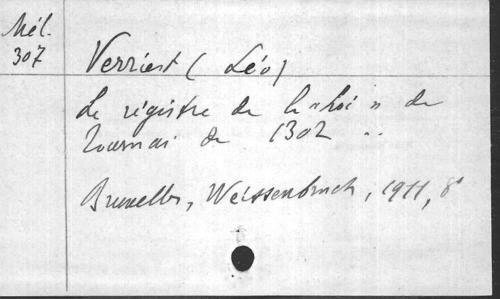 Mél.
307
Verriest (Léo)
Le régistre de la "Loi" de
Tournai de 1302 ..
Bruxelles, Weissenbruch, 1911, 8°